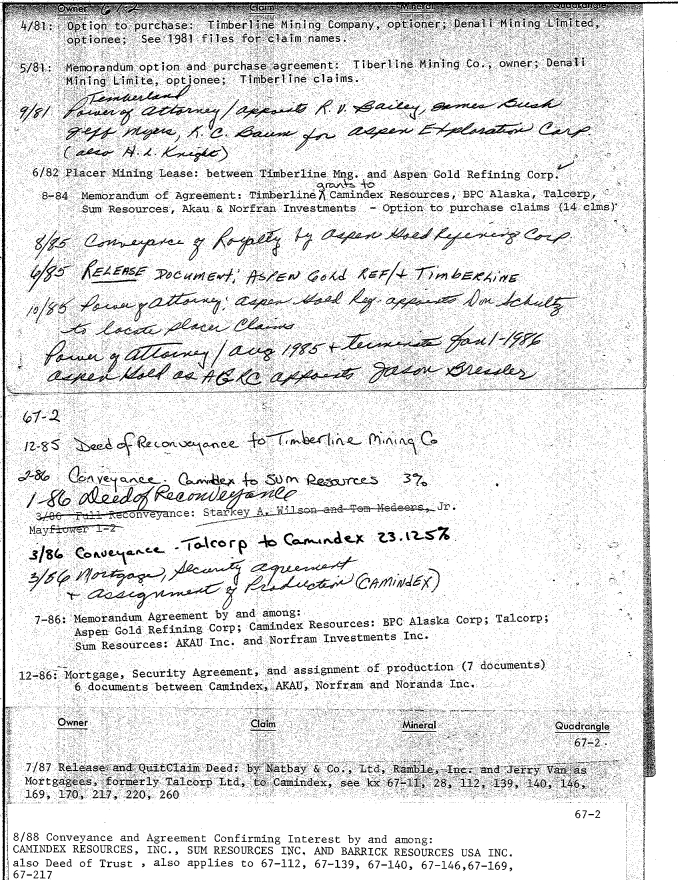 Owner 67-2 Claim Mineral Quadrangle
4/81: Option to purchase: Timberline Mining Company, optioner; Denali Mining Limited,
optionee; See 1981 files for claim names.
5/81: Memorandum option and purchase agreement: Tiberline Mining Co., owner; Denali
Mining Limite, optionee; Timberline claims.
Timberland
9/81 Power of Attorney/appoints R.V. Bailey, James Bush
Jeff Myers, K.C. Baum for Aspen Exploration Corp
(also H.L. Knight)
6/82 Placer Mining Lease: between Timberline Mng. and Aspen Gold Refining Corp.
grants to
8-84 Memorandum of Agreement: Timberline Camindex Resources, BPC Alaska, Talcorp,
Sum Resources, Akau & Norfran Investments - Option to purchase claims (14 clms)
8/85 Conveyance of Royalty by Aspen Gold Refining Corp.
6/85 RELEASE DOCUMENT; ASPEN GOLD REF/+ TIMBERLINE
10/85 Power of Attorney: Aspen Gold Ref. appoints Don Schultz
to locate placer claims
Power of attorney/aug 1985 + terminate Jan 1-1986
Aspen Gold as AGRC appoints Jason Bressler
67-2
12-85 Deed of Reconveyance to Timberline Mining Co
2-86 Conveyance - Camindex to SUM Resources 3%
1-86 Deed of Reconveyance
3/86 Full Reconveyance: Starkey A. Wilson and Tom Medeers, Jr.
Mayflower 1-2
3/86 Conveyance - Talcorp to Camindex 23.125%
3/86 Mortgage, Security agreement
+ assignment of Production (CAMINDEX)
7-86: Memorandum Agreement by and among:
Aspen Gold Refining Corp; Camindex Resources: BPC Alaska Corp; Talcorp;
Sum Resources: AKAU Inc. and Norfram Investments Inc.
12-86: Mortgage, Security Agreement, and assignment of production (7 documents)
6 documents between Camindex, AKAU, Norfram and Noranda Inc.
Owner Claim Mineral Quadrangle
67-2.
7/87 Release and QuitClaim Deed: by Natbay & Co., Ltd, Ramble, Inc. and Jerry Van as
Mortgagees, formerly Talcorp Ltd, to Camindex, see kx 67-11, 28, 112, 139, 140, 146,
169, 170, 217, 220, 260
67-2
8/88 Conveyance and Agreement Confirming Interest by and among:
CAMINDEX RESOURCES, INC., SUM RESOURCES INC. AND BARRICK RESOURCES USA INC.
also Deed of Trust , also applies to 67-112, 67-139, 67-140, 67-146,67-169,
67-217